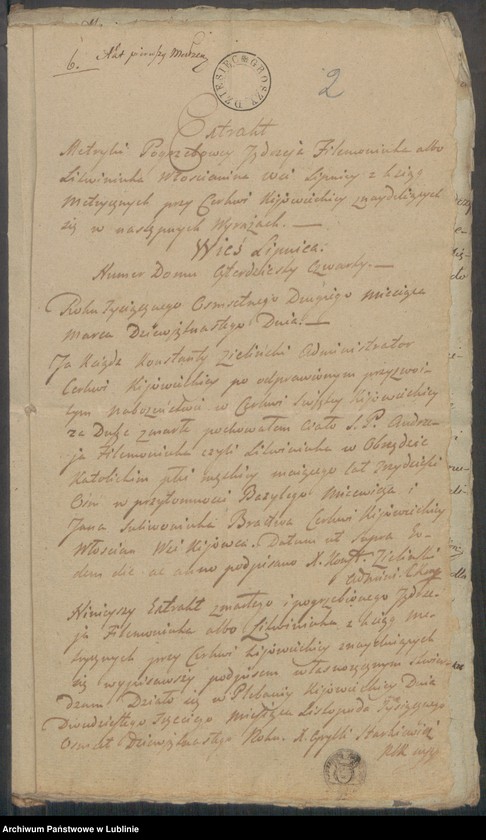 6. Akt pierwszy
DZIESIĘĆ GROSZY
2
Extrakt
Metryki Pogrzebowey Jędrzeja Filemoniuka albo
Litwiniuka Włościanina wsi Lipnicy z Xiąg
Metrycznych przy Cerkwi Kijowieckiey znayduiących
się w następnych Wyrazach. —
Wieś Lipnica.
Numer Domu Czterdziesty Czwarty. —
Roku Tysiącznego Osmsetnego Drugiego Miesiąca
Marca Dziewiętnastego Dnia. —
Ja Xiądz Konstanty Zieliński Administrator
Cerkwi Kijowieckiey po odprawionym przyzwoi-
tym nabożeństwie w Cerkwi Kijowieckiey
za Duszę zmarłą pochowałem ciało S. P. Andrze-
ja Filemoniuka czyli Litwiniuka w Obrządku
Katolickim płci męzkiey maiącego lat Trzydzieści
Ośm w przytomności Bazylego Micewicza i
Jana Bractwa Cerkwi Kijowieckiey
Włościan Wsi Kijowca. Datum ut supra Eo-
dem die ac anno podpisano X. Konst. Zieliński
Admini. Cerkwi
Ninieyszy Extrakt zmarłego i pogrzebionego Jędrze-
ja Filemoniuka albo Litwiniuka z Xiąg Me-
trycznych przy Cerkwi Kijowieckiey znayduiących
się wypisawszy podpisem własnoręcznym stwier-
dzam Działo się w Plebanij Kijowieckiey Dnia
Dwudziestego Trzeciego Miesiąca Listopada Tysiącznego
Osmset Dziewiętnastego Roku. X. Cyrylli
Archiwum Państwowe w Lublinie